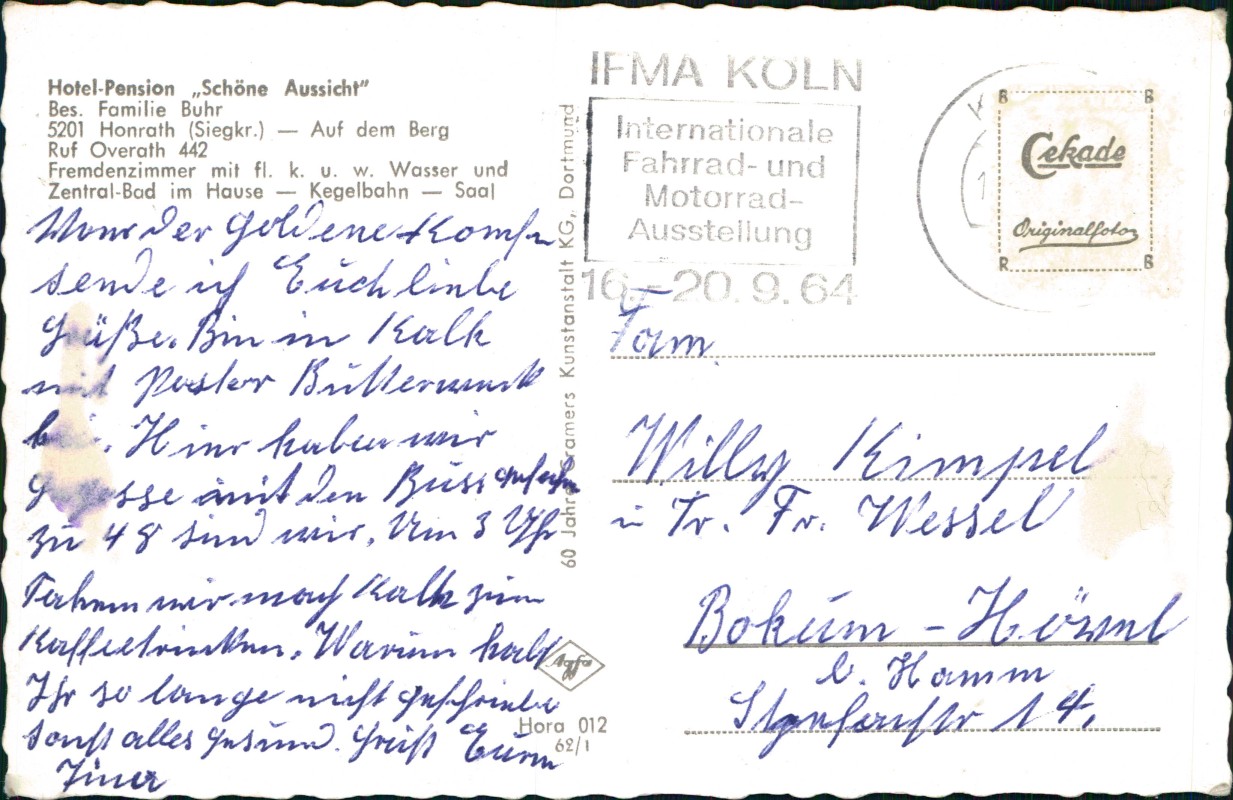 Hotel-Pension „Schöne Aussicht"
Bes. Familie Buhr
5201 Honrath (Siegkr.) — Auf dem Berg
Ruf Overath 442
Fremdenzimmer mit fl. k. u. w. Wasser und
Zentral-Bad im Hause — Kegelbahn — Saal
der goldene
sende ich Euch liebe
Grüße. Bin in Kalk
mit Pastor Butterweck
Hier haben wir
mit den Buss
zu 48 sind wir. Um 3 Uhr
wir nach Kalk zum
Kaffeetrinken. Warum habt
Ihr so lange nicht geschrieben
sonst alles gesund. Grüßt Euch
60 Jahre Cramers Kunstanstalt KG, Dortmund
Agfa
Hora 012
62/1
IFMA KÖLN
Internationale
Fahrrad- und
Motorrad-
Ausstellung
16.–20.9.64
K
1
B B
Cekade
Originalfoto
R B
Fam.
Willy Kimpel
Fr. Wessel
Bokum - Hövel
b. Hamm
14.